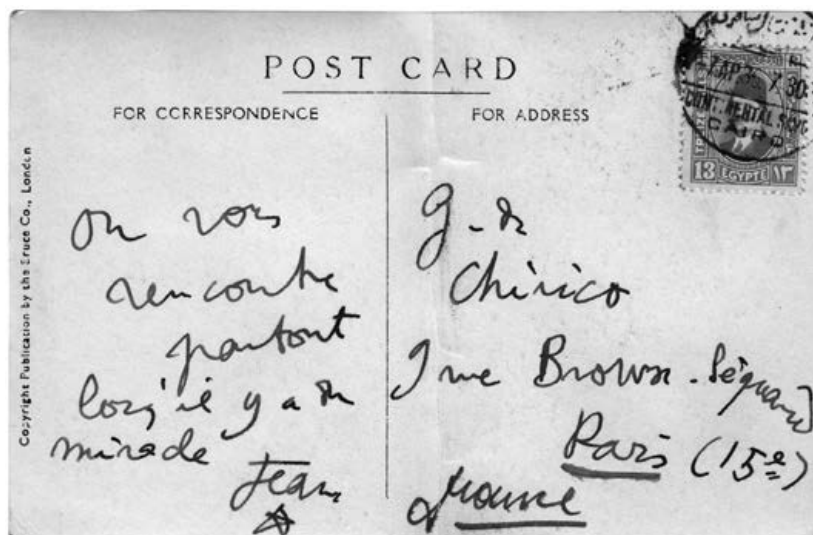 POST CARD
FOR CORRESPONDENCE
FOR ADDRESS
Copyright Publication by the Bruce Co., London
on vous
rencontre
partout
lorsqu'il y a du
miracle
Jean
G. de
Chirico
9 rue Brown-Séquard
Paris (15e)
France
7 AP 7 30
CAIRO
13 EGYPTE ١٣